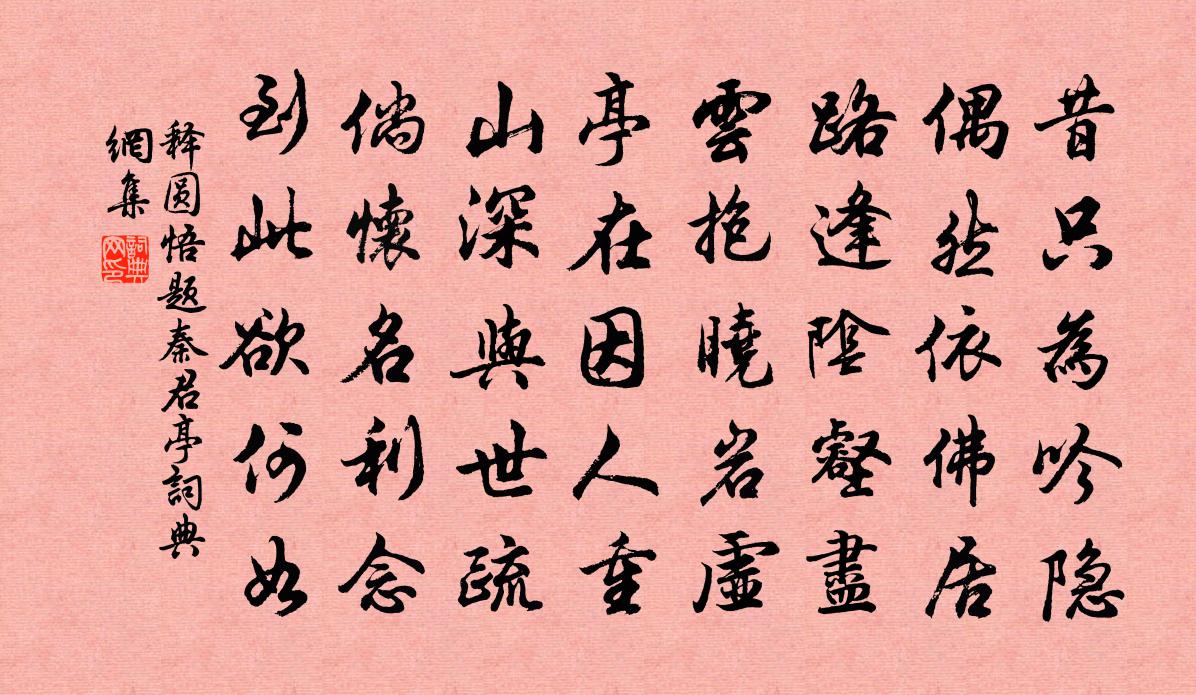 昔只為吟隐
偶然依佛居
路逢陰壑盡
雲抱曉岩虛
亭在因人重
山深與世疏
倘懷名利念
到此欲何如
释圆悟题秦君亭詞典
網集
詞典網印